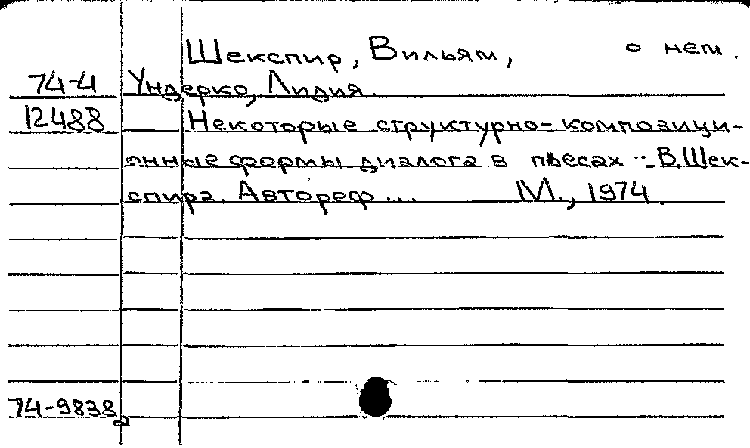 Шекспир, Вильям, о нем.
74-4 Ундерко, Лидия.
12488 Некоторые структурно-композици-
онные формы диалога в пьесах В.Шек-
спира. Автореф... М., 1974.
74-9838